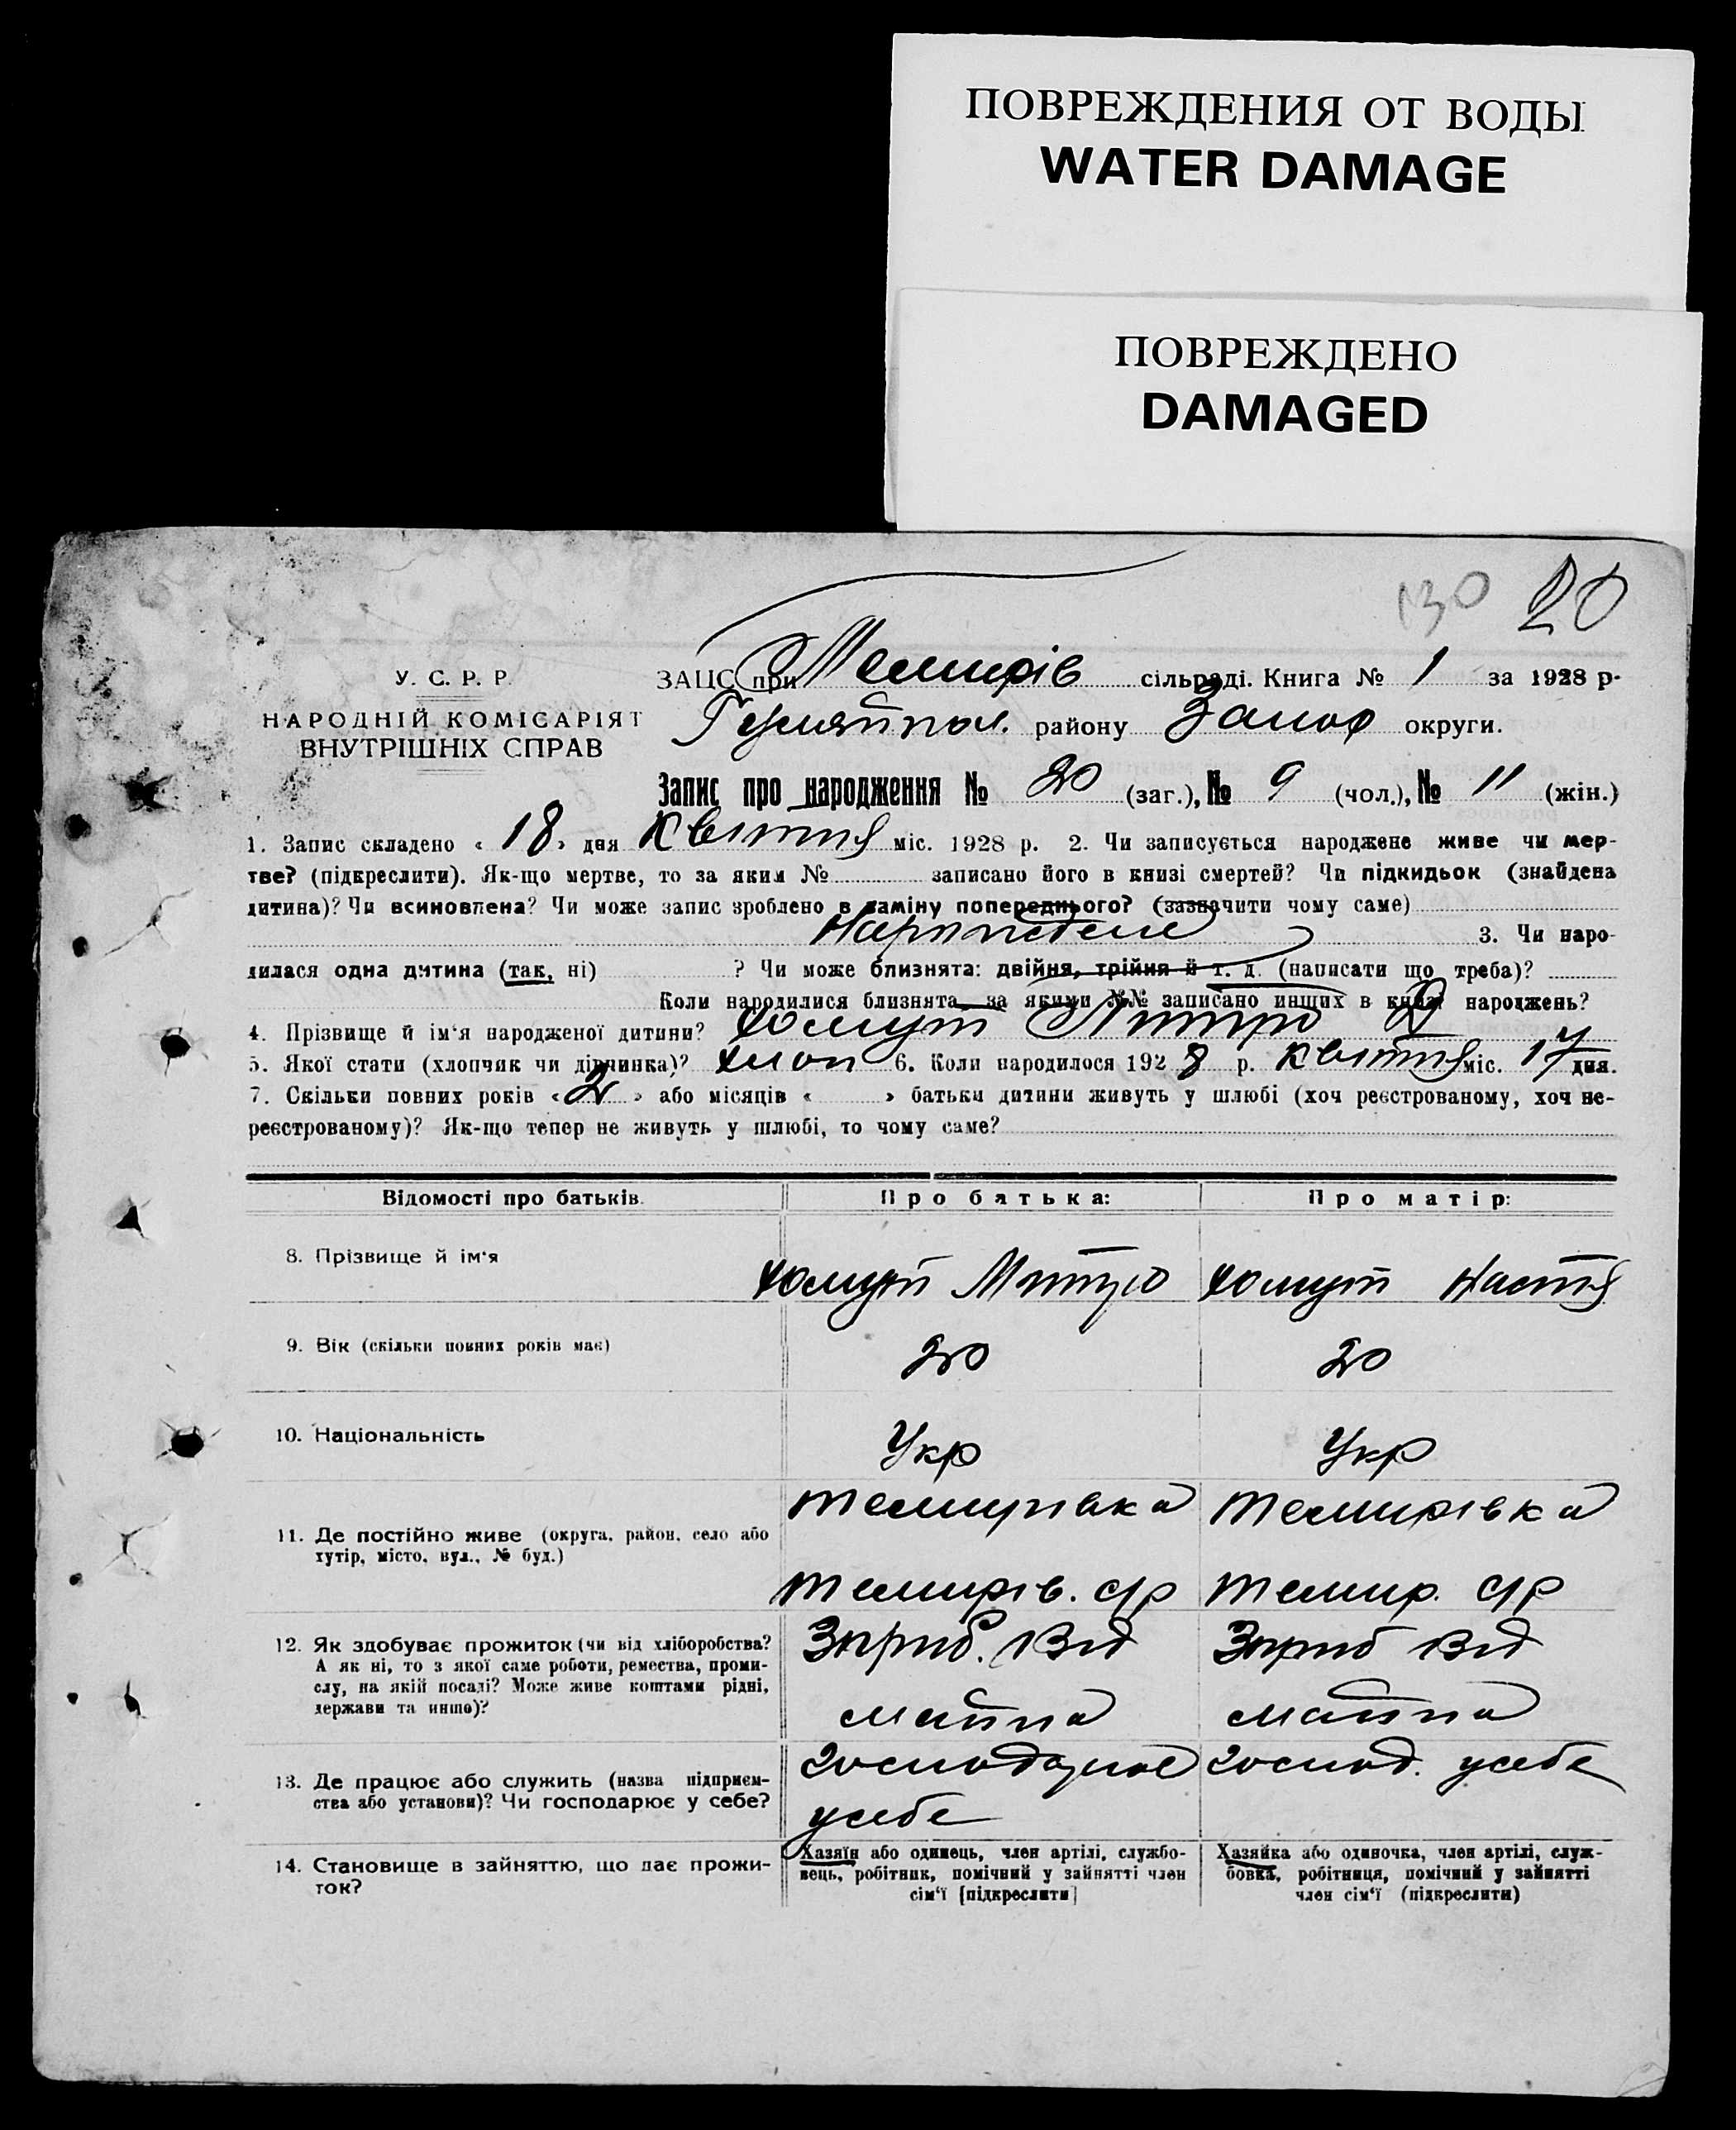 ПОВРЕЖДЕНИЯ ОТ ВОДЫ
WATER DAMAGE
ПОВРЕЖДЕНО
DAMAGED
130 20
У. С. Р. Р.
НАРОДНІЙ КОМІСАРІЯТ
ВНУТРІШНІХ СПРАВ
ЗАЦС при Темирів сільраді. Книга № 1 за 1928 р.
Гуляйпол. району Запор округи.
Запис про народження № 20 (заг.), № 9 (чол.), № 11 (жін.)
1. Запис складено « 18 » дня Квітня міс. 1928 р. 2. Чи записується народжене живе чи мер-
тве? (підкреслити). Як-що мертве, то за яким № записано його в книзі смертей? Чи підкидьок (знайдена
дитина)? Чи всиновлена? Чи може запис зроблено в заміну попереднього? (зазначити чому саме)
3. Чи наро-
дилася одна дитина (так, ні) ? Чи може близнята: двійня, трійня й т. д. (написати що треба)?
Коли народилися близнята, за якими №№ записано инших в книзі народжень?
4. Прізвище й ім‘я народженої дитини? Хомут
5. Якої стати (хлопчик чи дівчинка)? хлоп 6. Коли народилося 1928 р. Квітня міс. 17 дня.
7. Скільки повних років « 2 » або місяців « » батьки дитини живуть у шлюбі (хоч реєстрованому, хоч не-
реєстрованому)? Як-що тепер не живуть у шлюбі, то чому саме?
Відомості про батьків. Про батька: Про матір:
8. Прізвище й ім‘я Хомут Митро Хомут Настя
9. Вік (скільки повних років має) 20 20
10. Національність Укр Укр
Темирівка Темирівка
11. Де постійно живе (округа, район, село або
хутір, місто, вул., № буд.)
Темирів. с/р Темир. с/р
12. Як здобуває прожиток (чи від хліборобства? Зприб. Від Зприб Від
А як ні, то з якої саме роботи, ремества, проми-
слу, на якій посаді? Може живе коштами рідні,
держави та инше)? майна майна
господарює господ. у себе
13. Де працює або служить (назва підприєм-
ства або установи)? Чи господарює у себе? у себе
14. Становище в зайняттю, що дає прожи-
ток?
Хазяїн або одинець, член артілі, службо-
вець, робітник, помічний у зайнятті член
сім‘ї [підкреслити]
Хазяйка або одиночка, член артілі, служ-
бовка, робітниця, помічний у зайнятті
член сім‘ї (підкреслити)